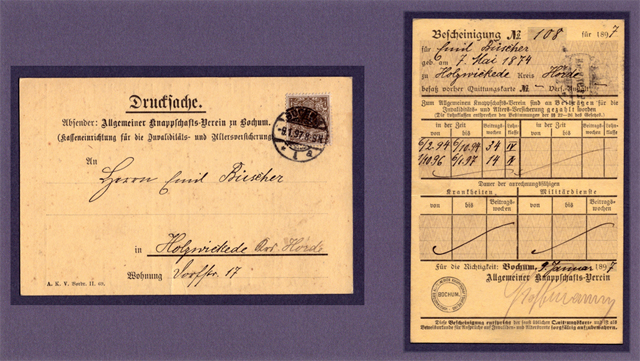 Drucksache.
Absender: Allgemeiner Knappschafts-Verein zu Bochum.
(Kasseneinrichtung für die Invaliditäts- und Altersversicherung)
BOCHUM
-9.1.97.8-9N
* 1 a
An
Herrn Emil Büscher
in Holzwickede Kr. Hörde
Wohnung Dorfstr. 17
A. K. V. Sorte. II.
Bescheinigung № 108 für 1897
für Emil Büscher
geb. am 7. Mai 1874
zu Holzwickede Kreis Hörde
besaß vorher Quittungskarte № — Vers.-Anst.
Zum Allgemeinen Knappschafts-Verein sind an Beiträgen für die
Invaliditäts- und Alters-Versicherung gezahlt worden:
in der Zeit
von bis Beitrags-wochen Lohn-Klasse
in der Zeit
von bis Beitrags-wochen Lohn-Klasse
5/2.94 5/10.96 34 IV
7/10.96 5/1.97 14 IV
Dauer der anrechnungsfähigen
Krankheiten Militärdienste
von bis Beitrags-wochen
von bis Beitrags-wochen
Für die Richtigkeit: Bochum, 9. Januar 1897
Allgemeiner Knappschafts-Verein
BOCHUM.
Diese Bescheinigung